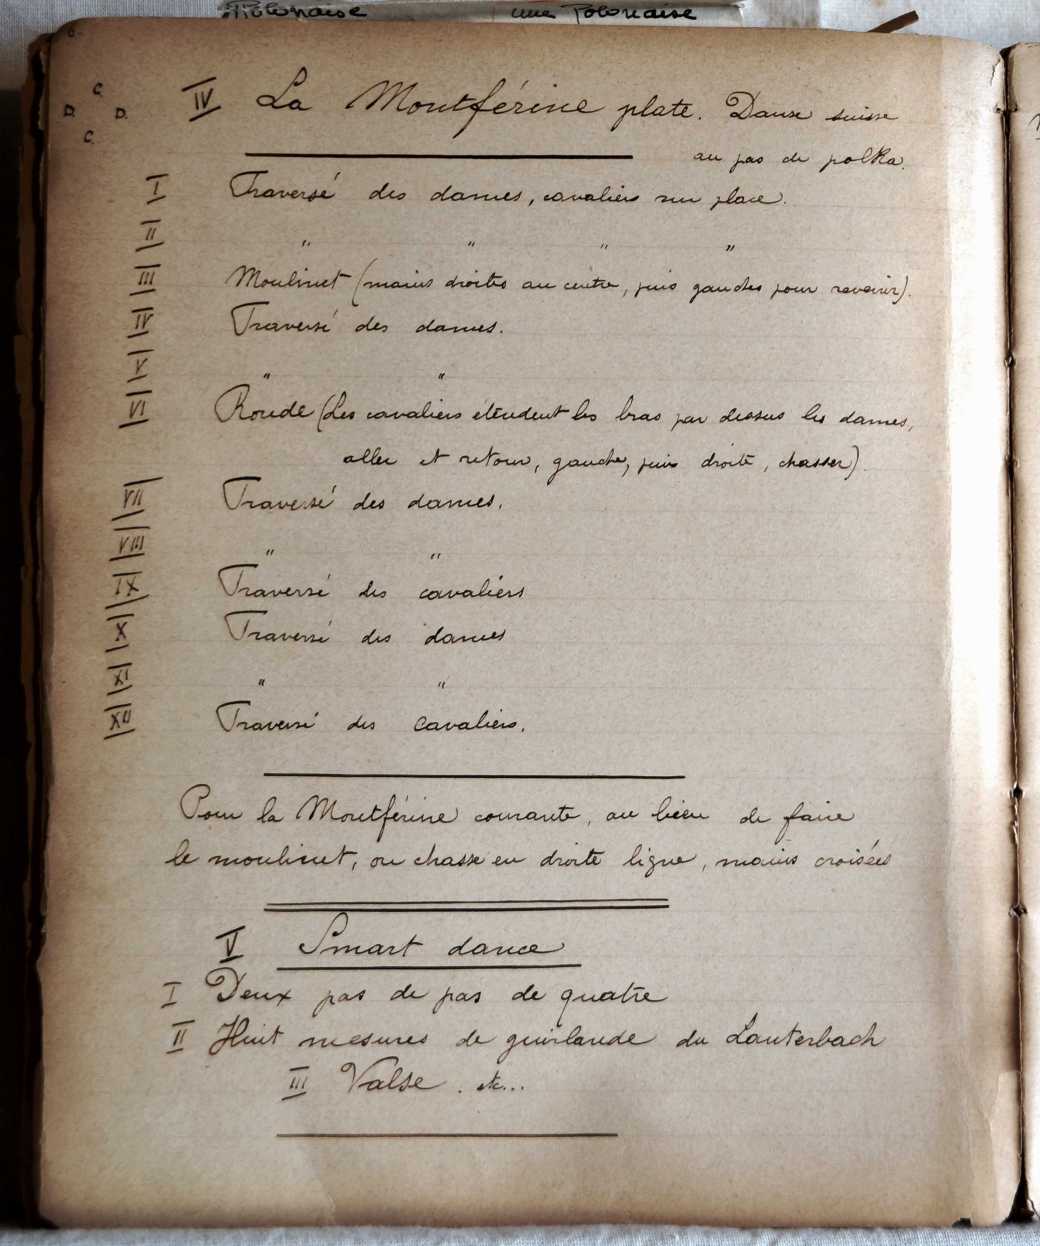 Polonaise une Polonaise
C.
D. D.
C.
IV La Montférine plate. Danse suisse
au pas de polka.
I Traversé des dames, cavaliers sur place.
II " " " "
III Moulinet (mains droites au centre, puis gauches pour revenir).
IV Traversé des dames.
V " "
VI Ronde (Les cavaliers étendent les bras par dessus les dames,
aller et retour, gauche, puis droite, chasser)
VII Traversé des dames.
VIII " "
IX Traversé des cavaliers
X Traversé des dames
XI " "
XII Traversé des cavaliers.
Pour la Montférine courante, au lieu de faire
le moulinet, on chasse en droite ligne, mains croisées
V Smart dance
I Deux pas de pas de quatre
II Huit mesures de guirlande du Lauterbach
III Valse. etc...